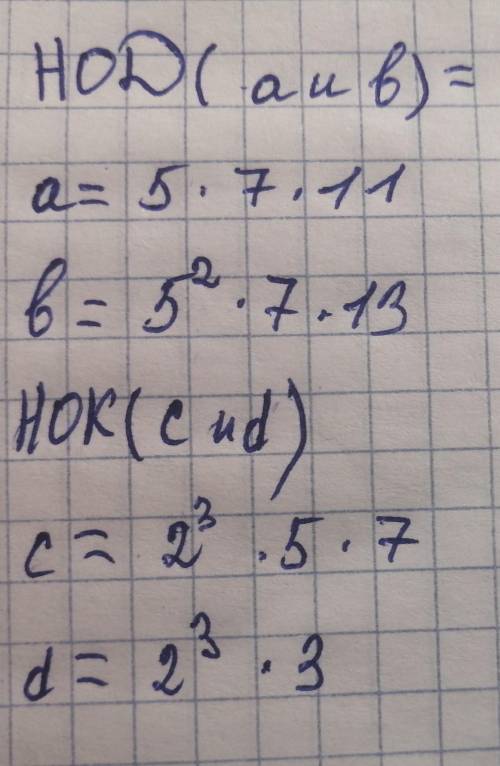 НОД( a и b) =
a = 5 · 7 · 11
b = 5² · 7 · 13
НОК( c и d)
c = 2³ · 5 · 7
d = 2³ · 3